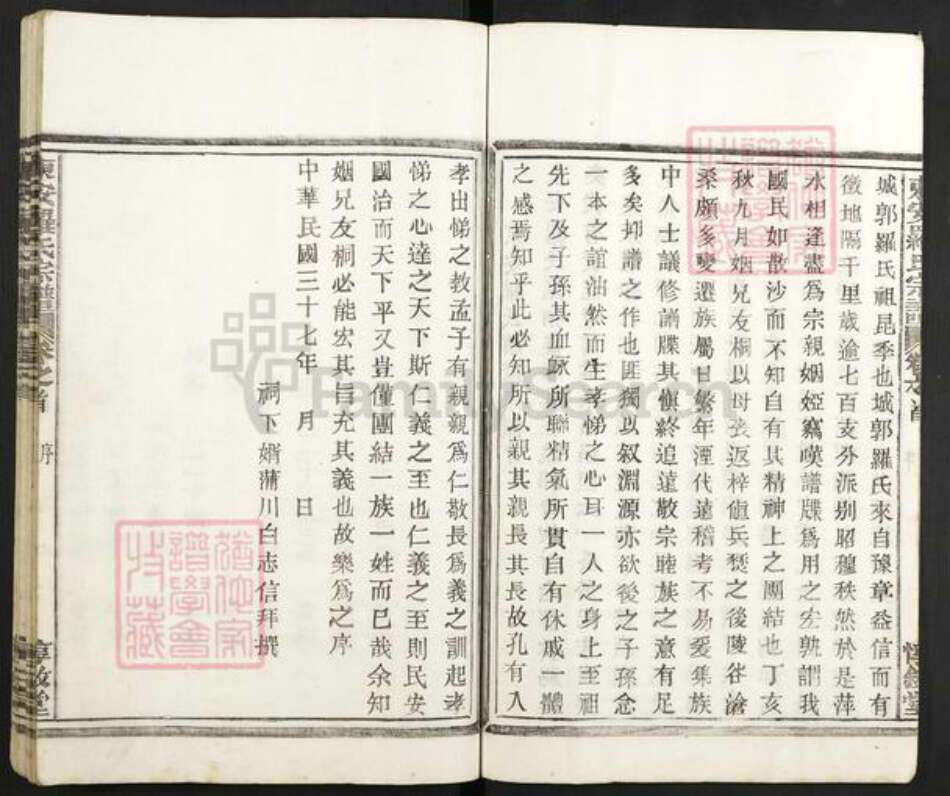 東安羅氏宗譜 卷之首
惇敘堂
城郭羅氏祖昆季也城郭羅氏來自豫章益信而有
徵地隔千里歲逾七百支分派別昭穆秩然於是萍
水相逢盡為宗親姻婭竊嘆譜牒為用之宏孰謂我
國民如散沙而不知自有其精神上之團結也丁亥
秋九月姻兄友桐以母喪返梓值兵燹之後陵谷滄
桑頗多變遷族屬日繁年湮代遠稽考不易爰集族
中人士議修譜牒其慎終追遠敬宗睦族之意有足
多矣抑譜之作也匪獨以叙淵源亦欲後之子孫念
一本之誼油然而生孝悌之心耳一人之身上至祖
先下及子孫其血脉所聯精氣所貫自有休戚一體
之感焉知乎此必知所以親其親長其長故孔有入
孝出悌之教孟子有親親為仁敬長為義之訓起孝
悌之心達之天下斯仁義之至也仁義之至則民安
國治而天下平又豈僅團結一族一姓而已哉余知
姻兄友桐必能宏其旨充其義也故樂為之序
中華民國三十七年 月 日
祠下婿蒲川白志信拜撰
東安羅氏宗譜 卷之首 序
惇敘堂
猶他家
譜學會
收藏
猶他家
譜學會
收藏
FamilySearch